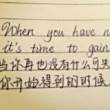 When you have n
it's time to gain
当你再也没有什么可失
你开始得到的时候